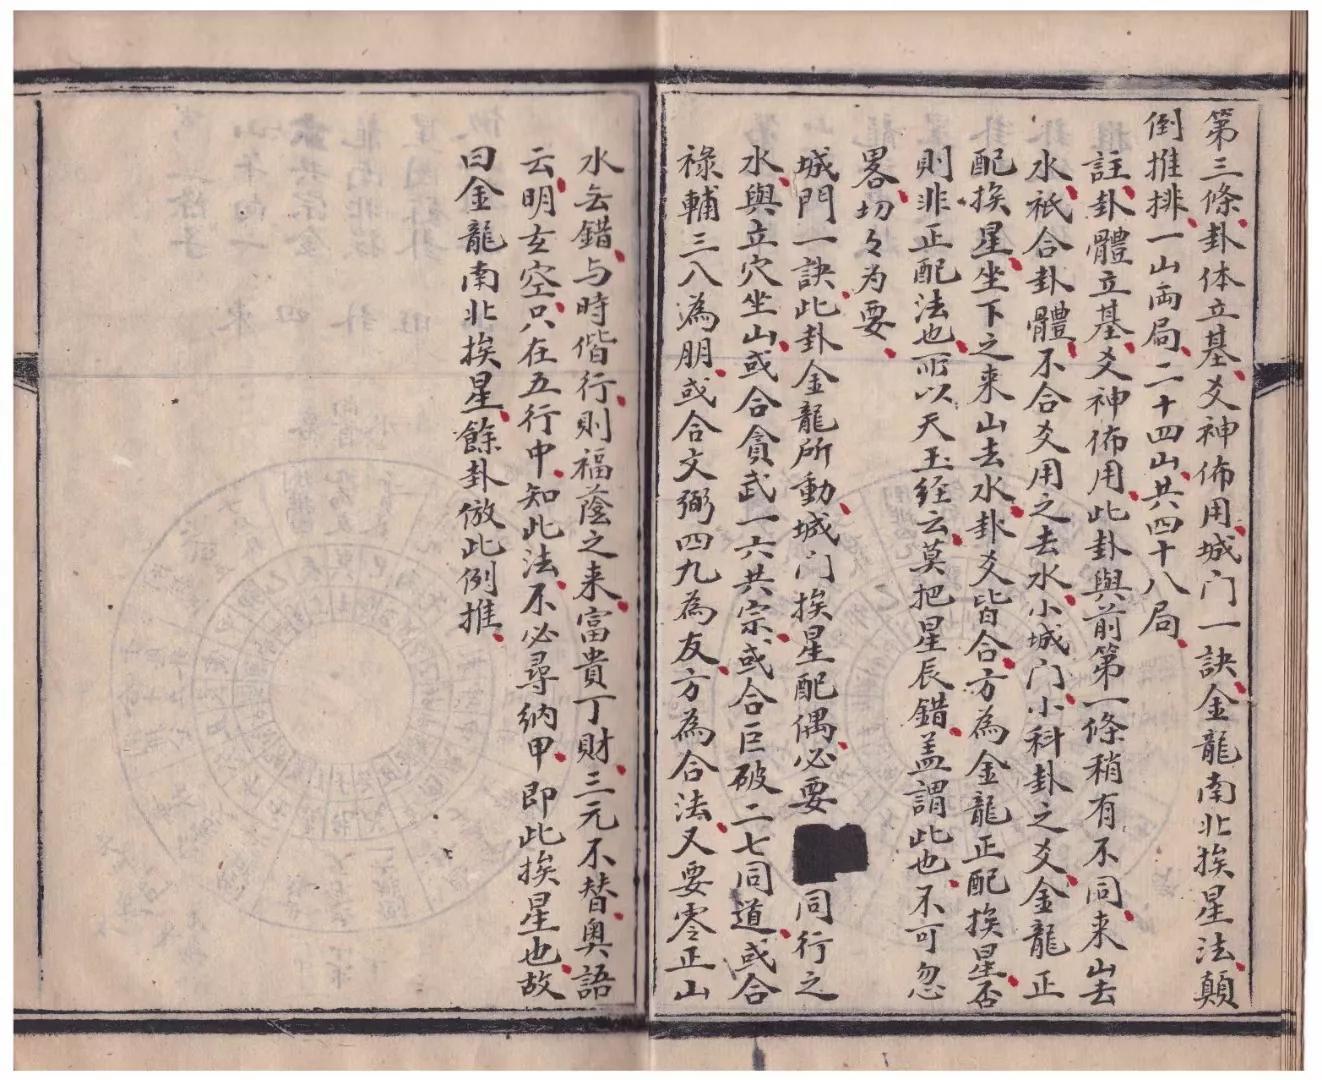 第三條卦体立基爻神佈用城门一訣金龍南北挨星法顛
倒推排一山両局二十四山共四十八局
註卦體立基爻神佈用此卦與前第一條稍有不同来山去
水祇合卦體不合爻用之去水小城门小科卦之爻金龍正
配挨星坐下之来山去水卦爻皆合方為金龍正配挨星否
則非正配法也所以天玉经云莫把星辰錯盖謂此也不可忽
畧切々为要
城門一訣此卦金龍所動城门挨星配偶必要同行之
水與立穴坐山或合貪武一六共宗或合巨破二七同道或合
祿輔三八為朋或合文弼四九為友方為合法又要零正山
水無錯与時偕行則福蔭之来富貴丁財三元不替奥語
云明玄空只在五行中知此法不必尋納甲即此挨星也故
曰金龍南北挨星餘卦倣此例推